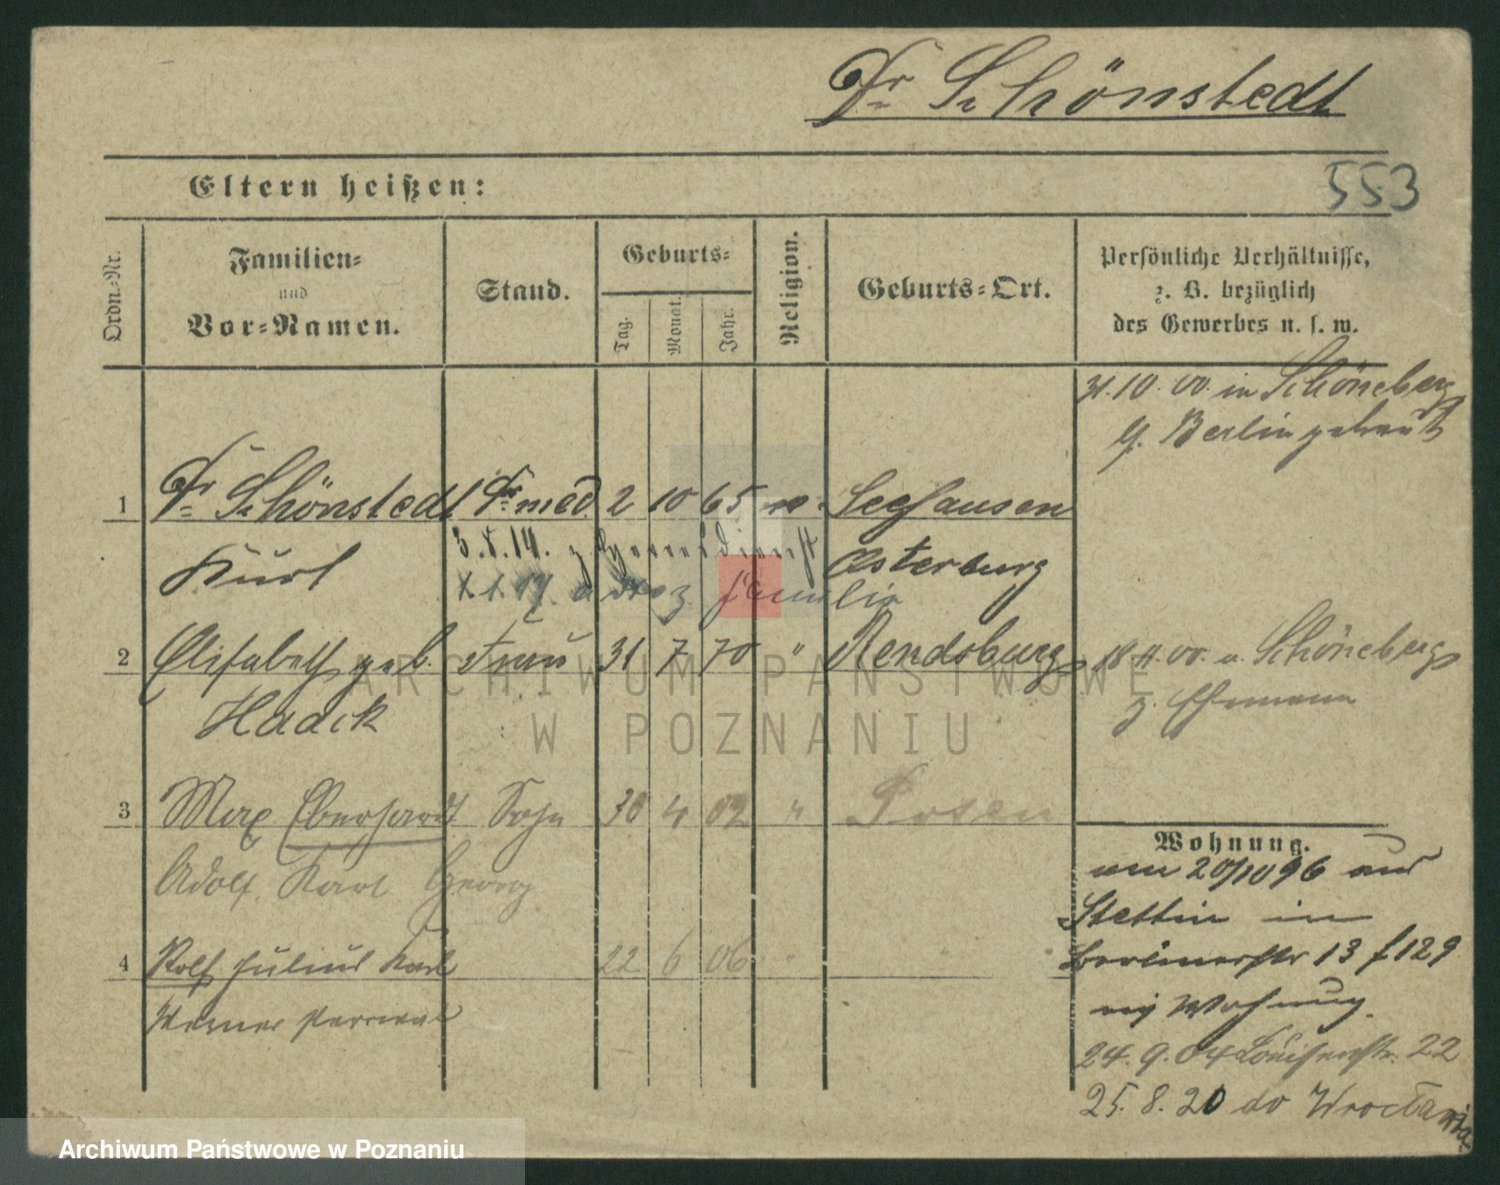 Dr Schönstedt
553
Eltern heißen:
Ordn.-Nr.
Familien-
und
Vor-Namen.
Stand.
Geburts-
Tag.
Monat.
Jahr.
Religion.
Geburts-Ort.
Persönliche Verhältnisse,
z. B. bezüglich
des Gewerbes u. s. w.
31.10.00. in Schöneberg
b. Berlin getraut
1 Dr Schönstedt Dr med 2 10 65 Seehausen
Kurt
3.8.14. z. Heeresdienst
Osterburg
Familie
2 Elisabeth geb. Frau 31 7 70 " Rendsburg
Haack
18.11.00. v. Schöneberg
z. Ehemann
3 Max Eberhardt Sohn 30 4 02 " Posen
Adolf Karl Georg
4 Rolf Julius Karl 22 6 06 " "
Werner
Wohnung.
am 20/10 96 aus
Stettin in
Berlinerstr 13 f 129
Wohnung.
24.9.04 Louisenstr. 22
25.8.20 do Wrocławia
ARCHIWUM PAŃSTWOWE
W POZNANIU
Archiwum Państwowe w Poznaniu